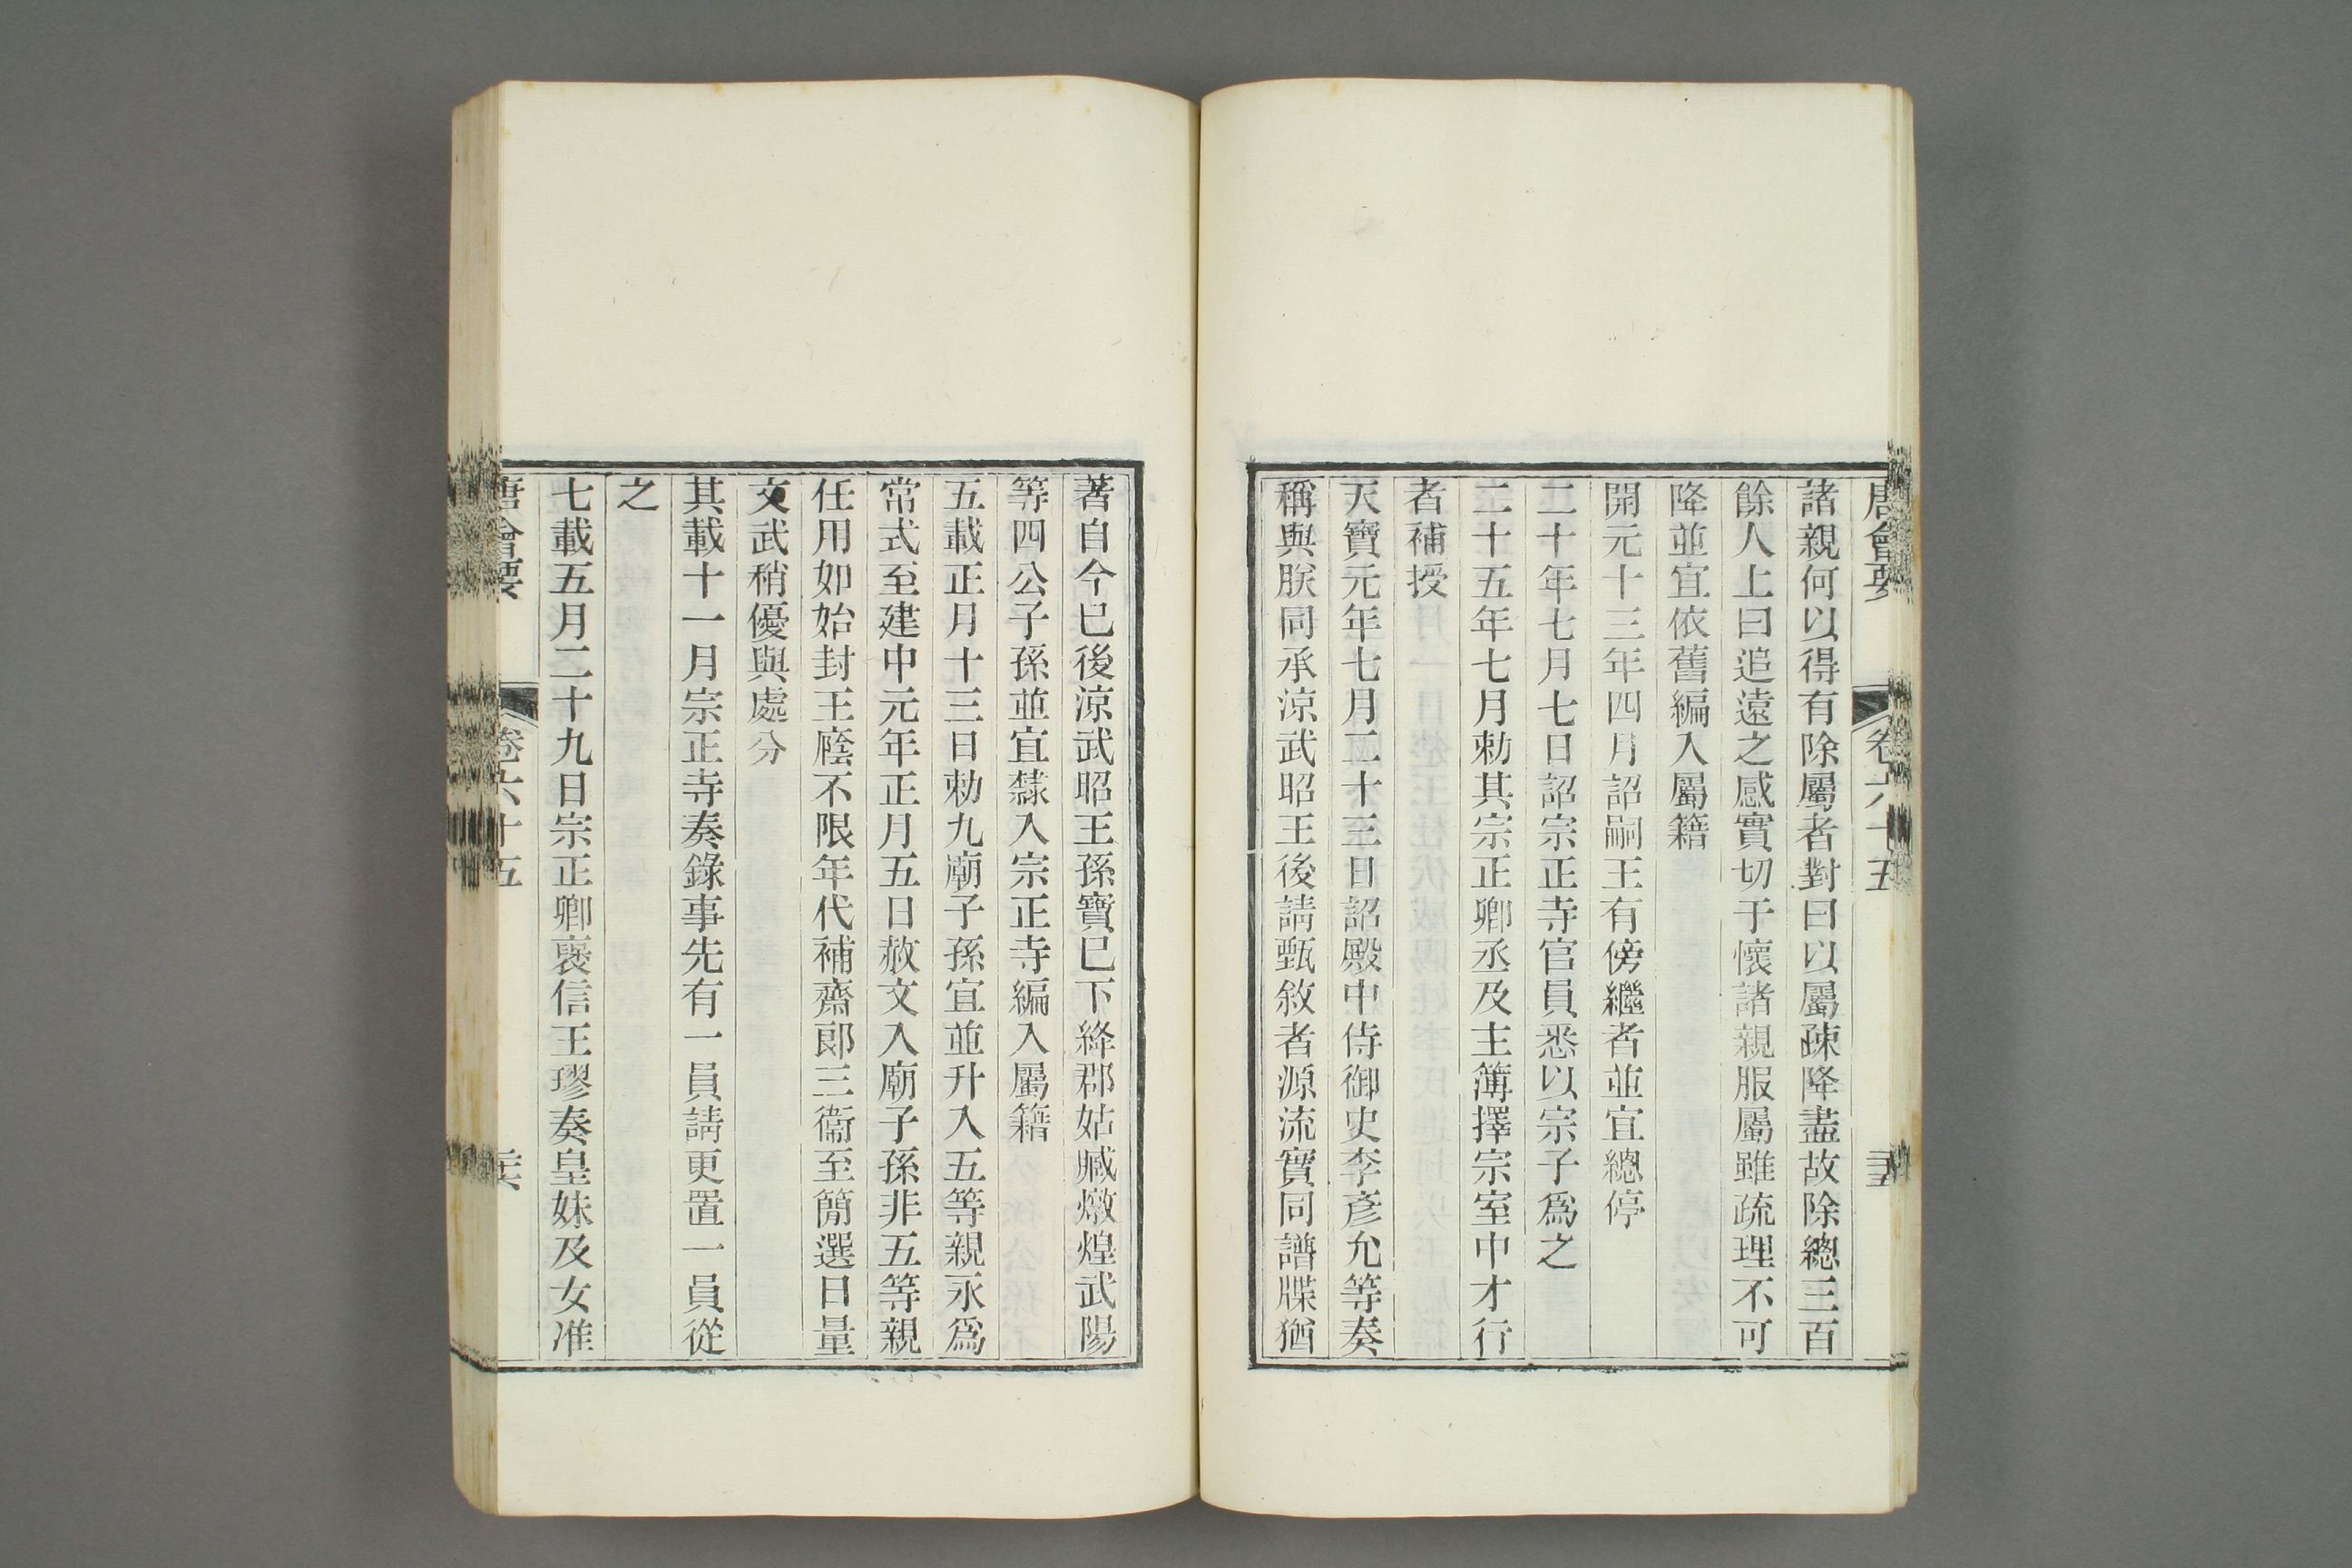 唐會要 卷六十五
諸親何以得有除屬者對曰以屬疎降盡故除總三百
餘人上曰追遠之感實切于懷諸親服屬雖疏理不可
降並宜依舊編入屬籍
開元十三年四月詔嗣王有傍繼者並宜總停
二十年七月七日詔宗正寺官員悉以宗子爲之
二十五年七月勅其宗正卿丞及主簿擇宗室中才行
者補授
天寶元年七月二十三日詔殿中侍御史李彥允等奏
稱與朕同承涼武昭王後請甄敘者源流實同譜牒猶
著自今巳後涼武昭王孫寶巳下絳郡姑臧燉煌武陽
等四公子孫並宜隸入宗正寺編入屬籍
五載正月十三日勅九廟子孫宜並升入五等親永爲
常式至建中元年正月五日赦文入廟子孫非五等親
任用如始封王廕不限年代補齋郎三衞至簡選日量
文武稍優與處分
其載十一月宗正寺奏錄事先有一員請更置一員從
之
七載五月二十九日宗正卿褒信王璆奏皇妹及女准
唐會要 卷六十五